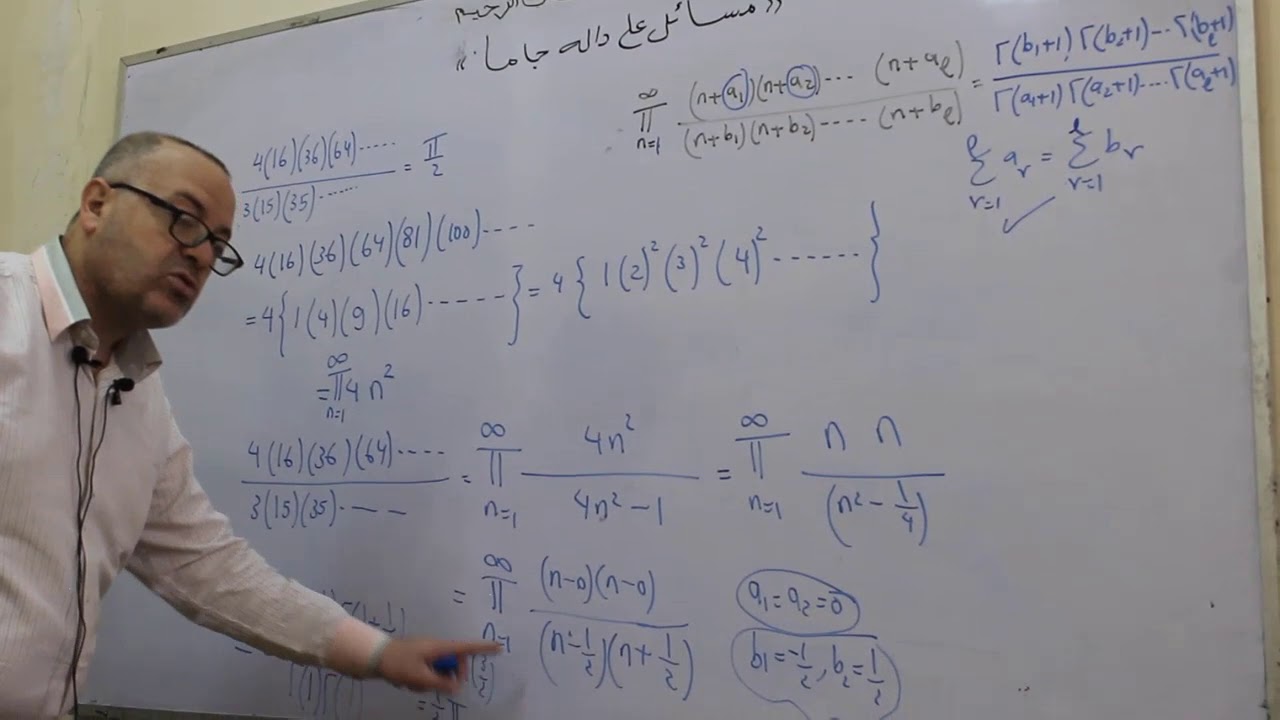 الرحيم
" مسائل على داله جاما "
∞ ∏ n=1 (n+a₁)(n+a₂)---- (n+aℓ) / (n+b₁)(n+b₂)---- (n+bℓ) = Γ(b₁+1) Γ(b₂+1)--- Γ(bℓ+1) / Γ(a₁+1) Γ(a₂+1)---- Γ(aℓ+1)
4(16)(36)(64)----- / 3(15)(35)------ = π/2
ℓ Σ r=1 aᵣ = ℓ Σ r=1 bᵣ ✓
4(16)(36)(64)(81)(100)----
= 4{1(4)(9)(16)------} = 4{1(2)²(3)²(4)²------}
= ∞ ∏ n=1 4n²
4(16)(36)(64)---- / 3(15)(35)---- = ∞ ∏ n=1 4n² / 4n²-1 = ∞ ∏ n=1 n n / (n² - 1/4)
= ∞ ∏ n=1 (n-0)(n-0) / (n-1/2)(n+1/2)
a₁=a₂=0
b₁=-1/2, b₂=1/2